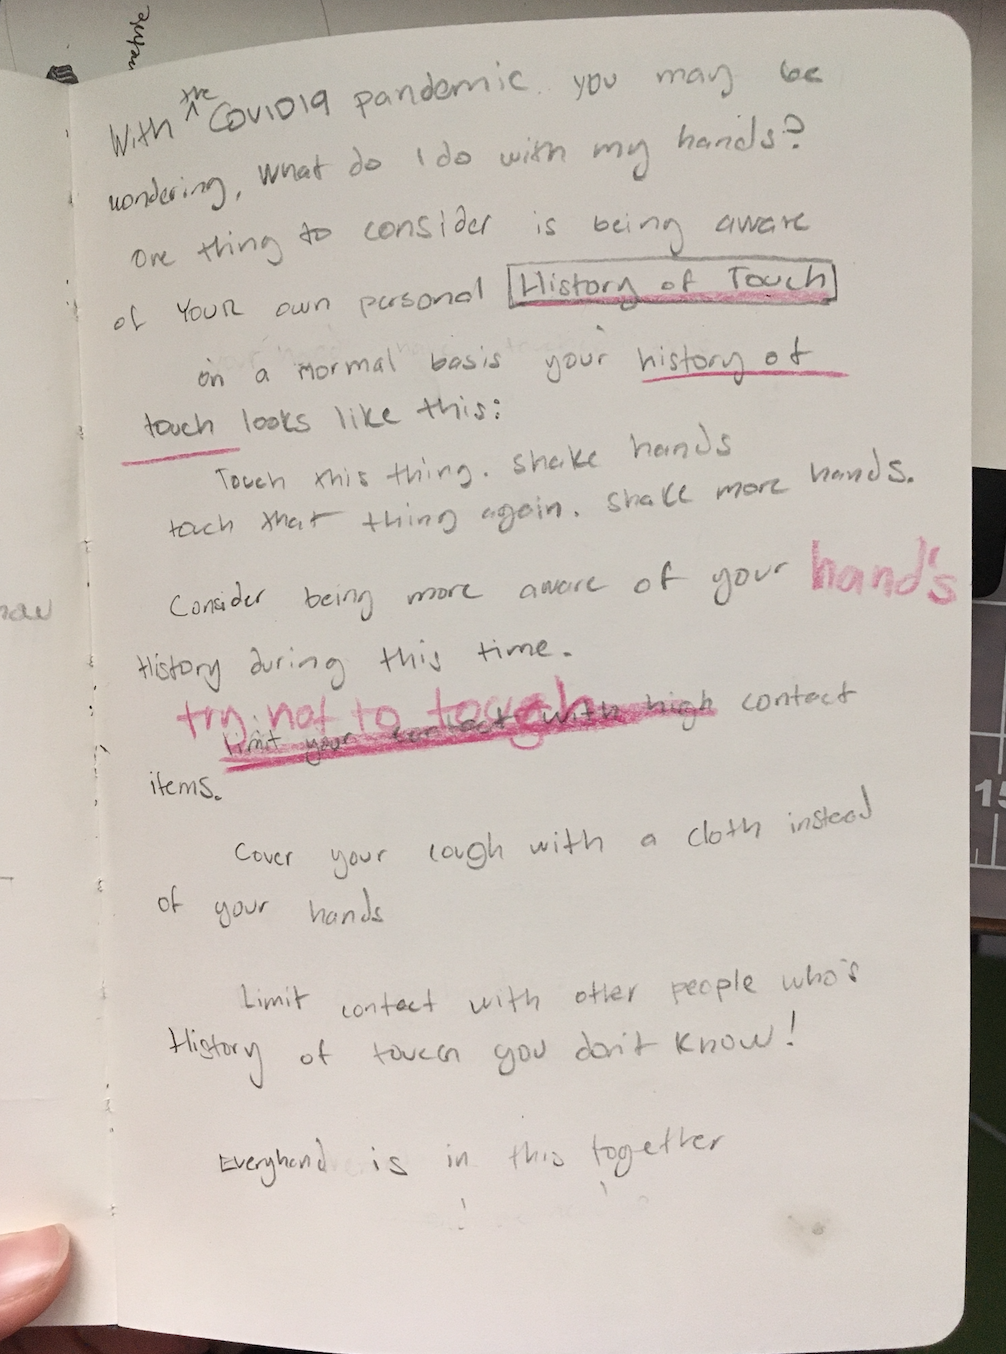 With the COVID19 pandemic you may be
wondering, what do I do with my hands?
one thing to consider is being aware
of YOUR own personal History of Touch
on a normal basis your history of
touch looks like this:
Touch this thing. Shake hands
touch that thing again. Shake more hands.
Consider being more aware of your hand's
History during this time.
try not to tough
Limit your contact with high contact
items.
Cover your cough with a cloth instead
of your hands
Limit contact with other people who's
History of touch you don't know!
Everyhand is in this together
15